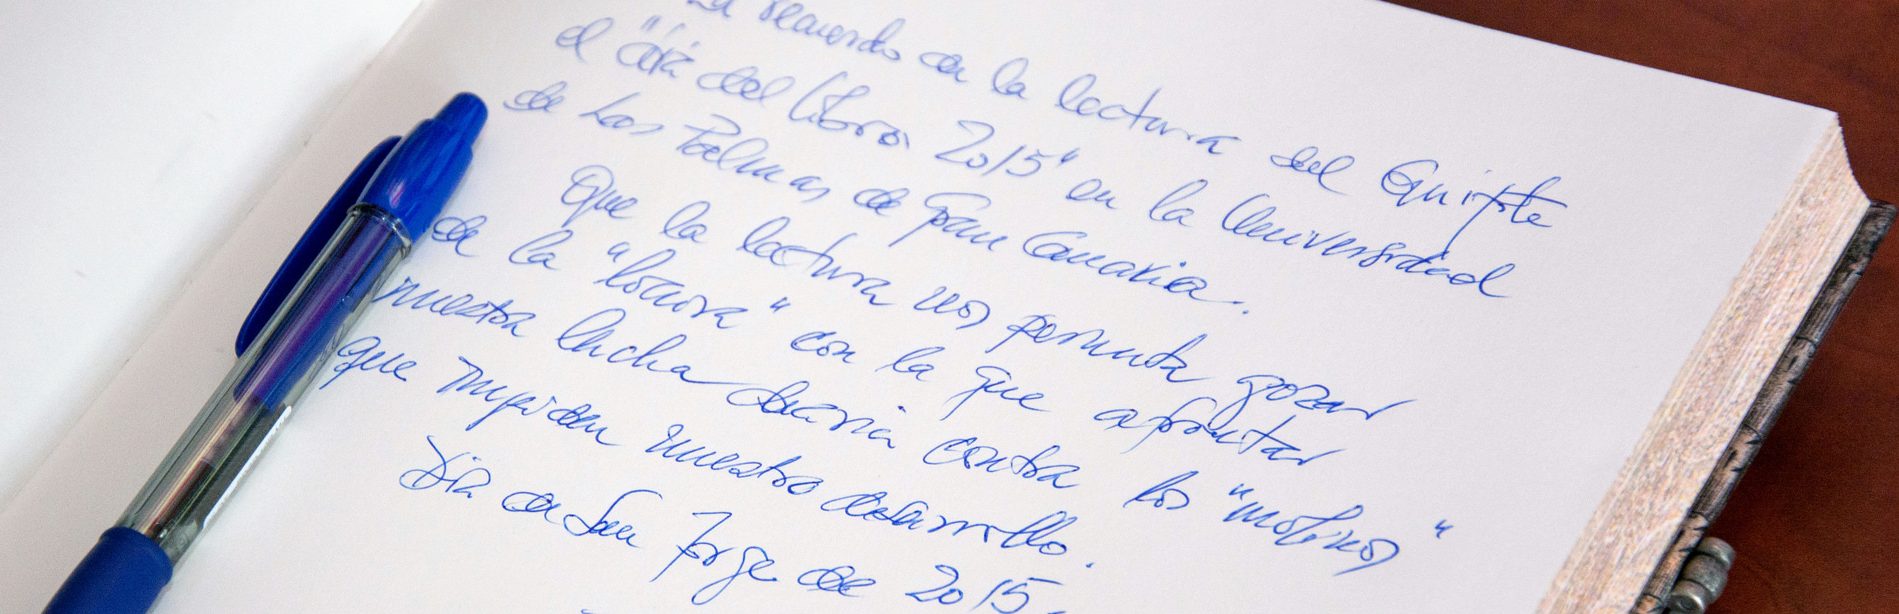 En recuerdo de la lectura del Quijote
el "día del libro 2015" en la Universidad
de Las Palmas de Gran Canaria.
Que la lectura nos permita gozar
de la "locura" con la que afrontar
nuestra lucha diaria contra los "molinos"
que impiden nuestro desarrollo.
Día de San Jorge de 2015.